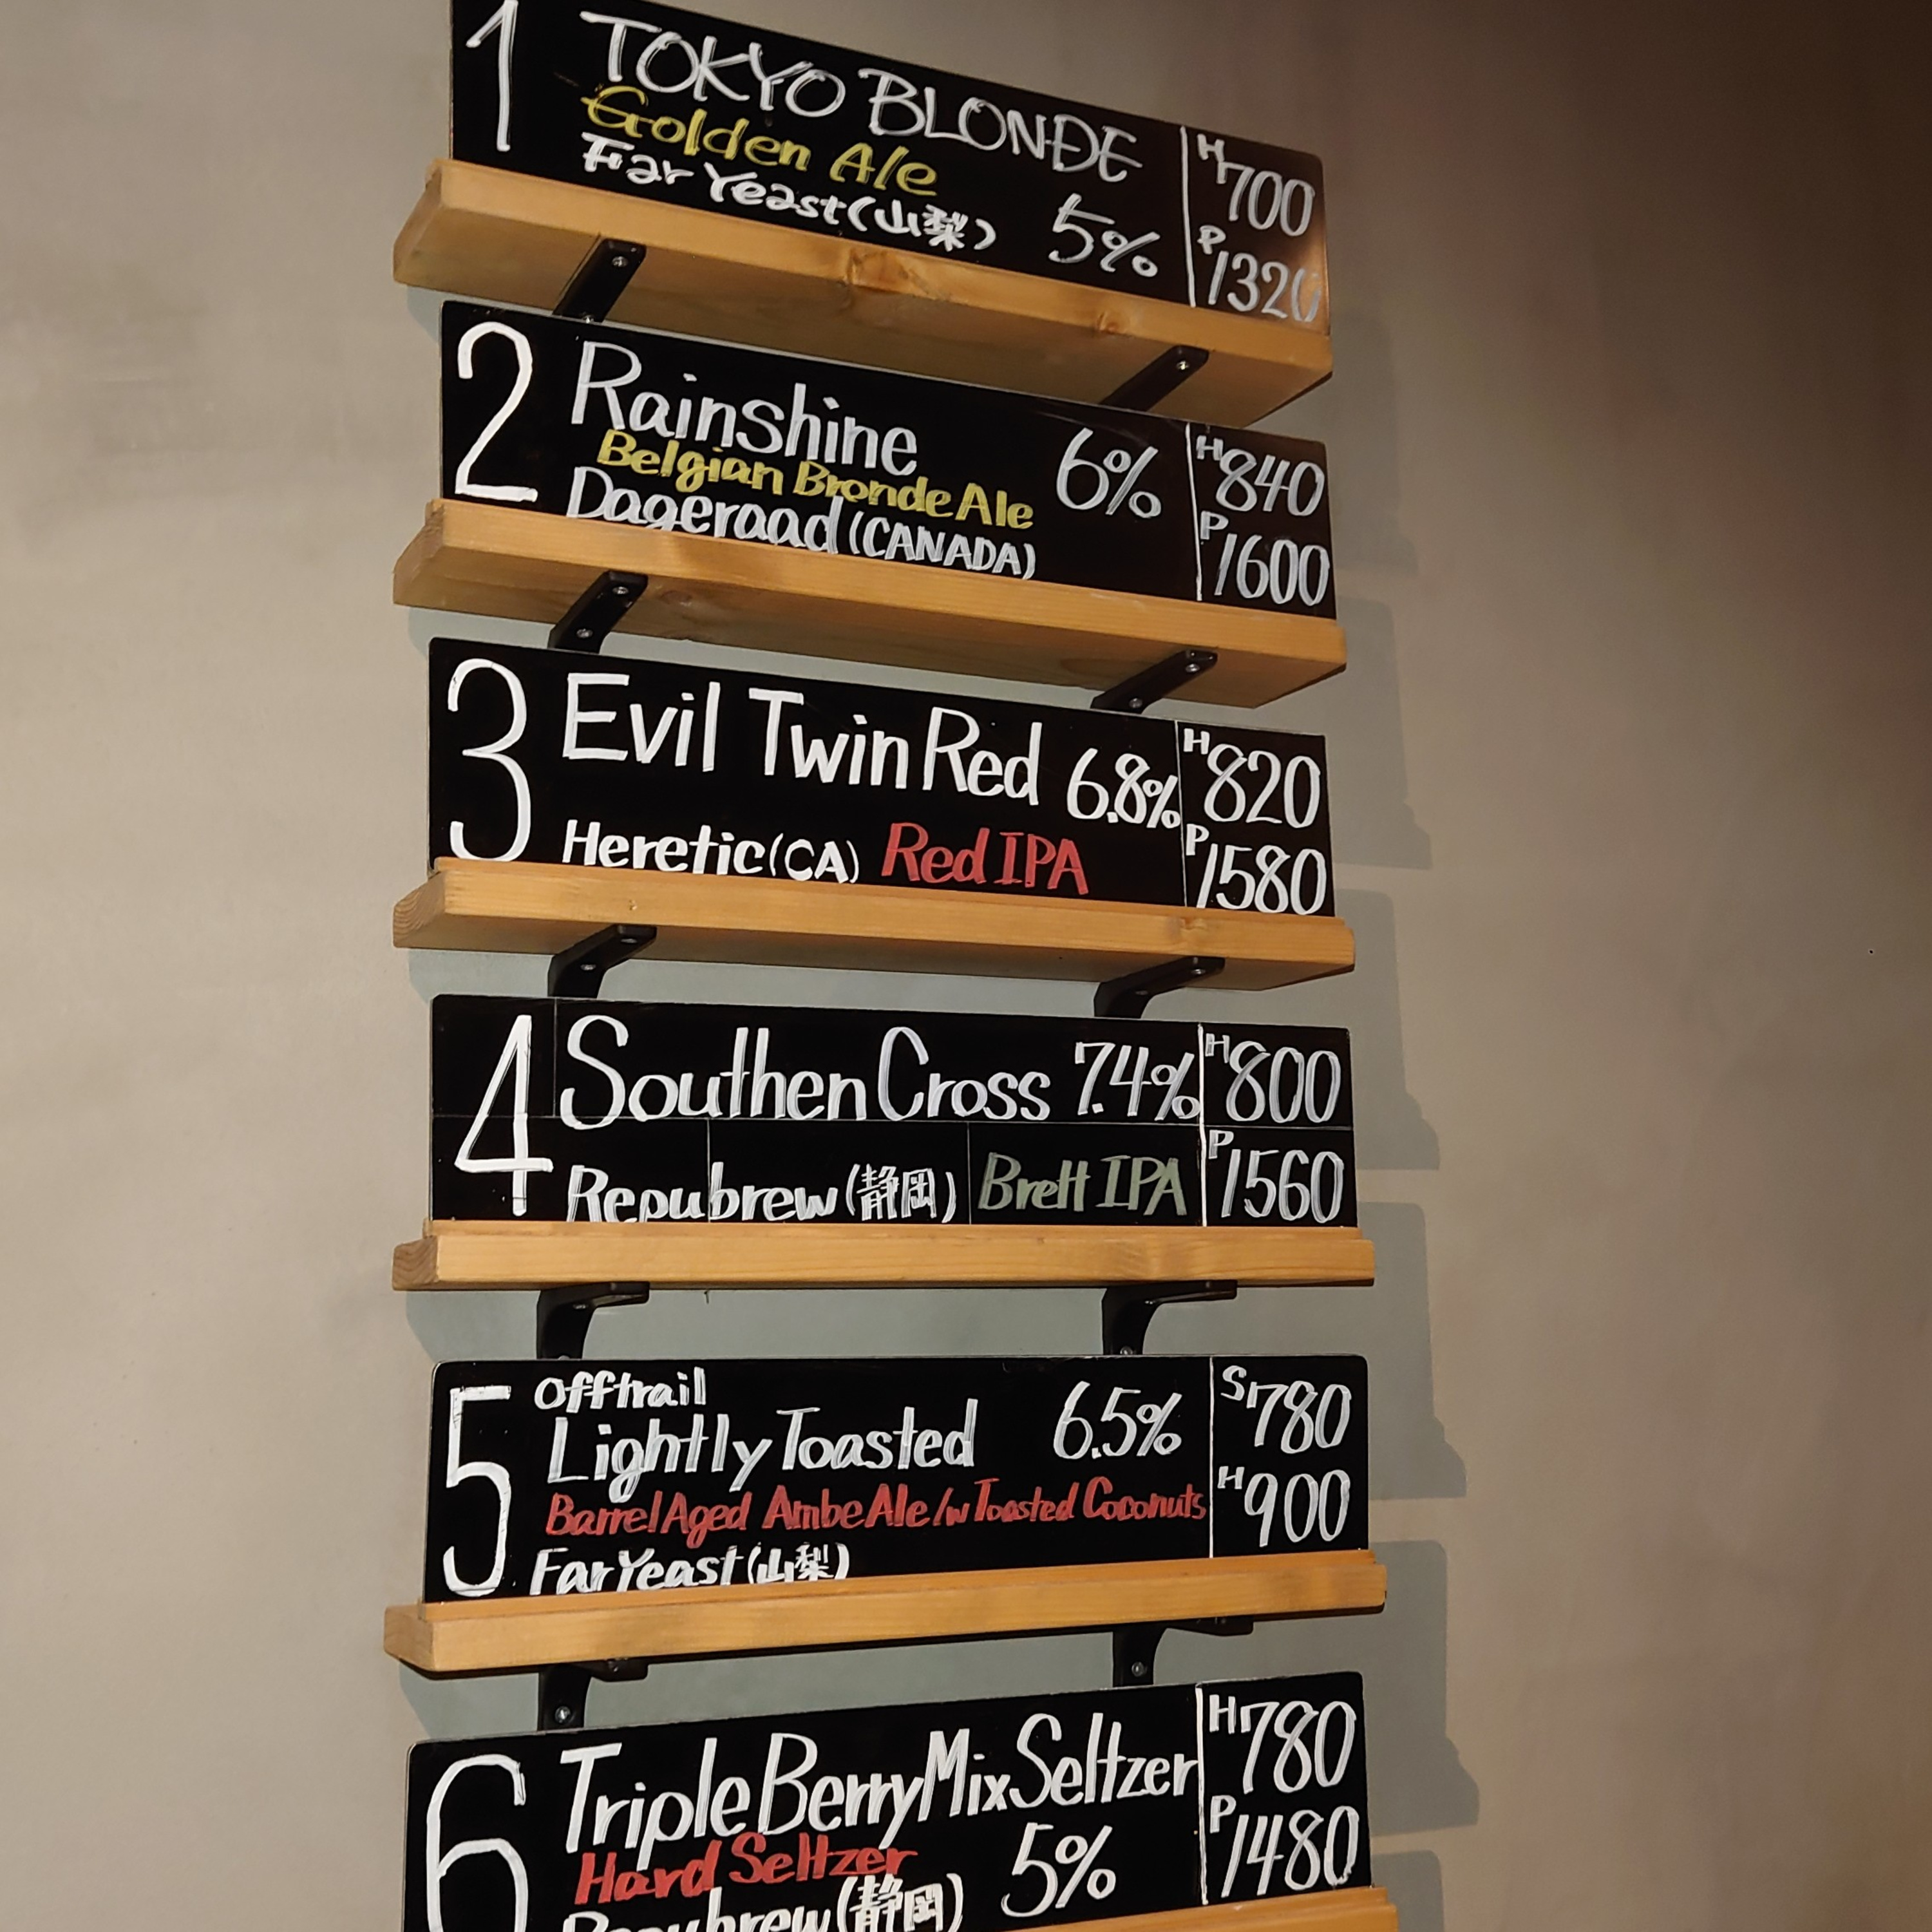 1
TOKYO BLONDE
Golden Ale
Far Yeast(山梨)
5%
H700
P1320
2
Rainshine
Belgian Bronde Ale
Dageraad(CANADA)
6%
H840
P1600
3
Evil Twin Red 6.8%
Heretic(CA) Red IPA
H820
P1580
4
Southen Cross 7.4%
Repubrew(静岡) Brett IPA
H800
P1560
5
Offtrail
Lightly Toasted 6.5%
Barrel Aged Ambe Ale /w Toasted Coconuts
Far Yeast(山梨)
S780
H900
6
Triple Berry Mix Seltzer
Hard Seltzer
5%
Repubrew(静岡)
H780
P1480